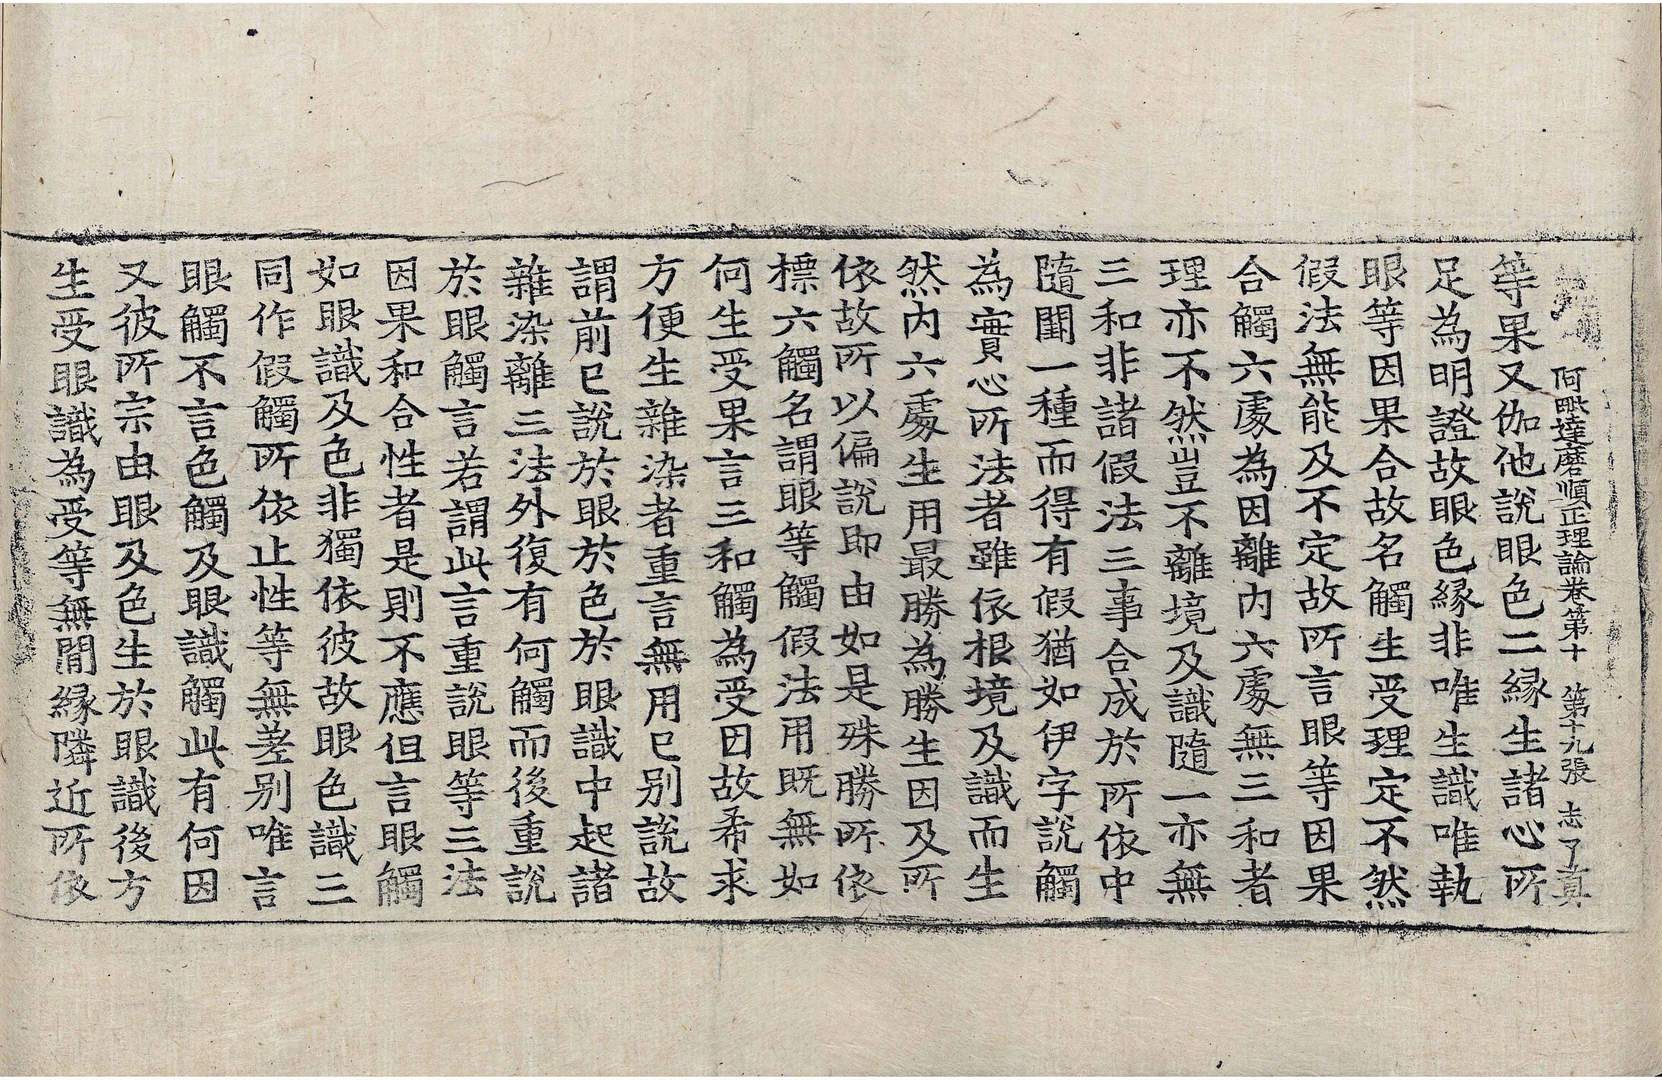 阿毗達磨順正理論卷第十 第十九張 志 了真
等果又伽他說眼色二縁生諸心所
足為明證故眼色縁非唯生識唯執
眼等因果合故名觸生受理定不然
假法無能及不定故所言眼等因果
合觸六處為因離内六處無三和者
理亦不然豈不離境及識隨一亦無
三和非諸假法三事合成於所依中
隨闕一種而得有假猶如伊字說觸
為實心所法者雖依根境及識而生
然内六處生用最勝為勝生因及所
依故所以偏說即由如是殊勝所依
標六觸名謂眼等觸假法用既無如
何生受果言三和觸為受因故希求
方便生雜染者重言無用已别說故
謂前已說於眼於色於眼識中起諸
雜染離三法外復有何觸而後重說
於眼觸言若謂此言重說眼等三法
因果和合性者是則不應但言眼觸
如眼識及色非獨依彼故眼色識三
同作假觸所依止性等無差别唯言
眼觸不言色觸及眼識觸此有何因
又彼所宗由眼及色生於眼識後方
生受眼識為受等無間縁隣近所依